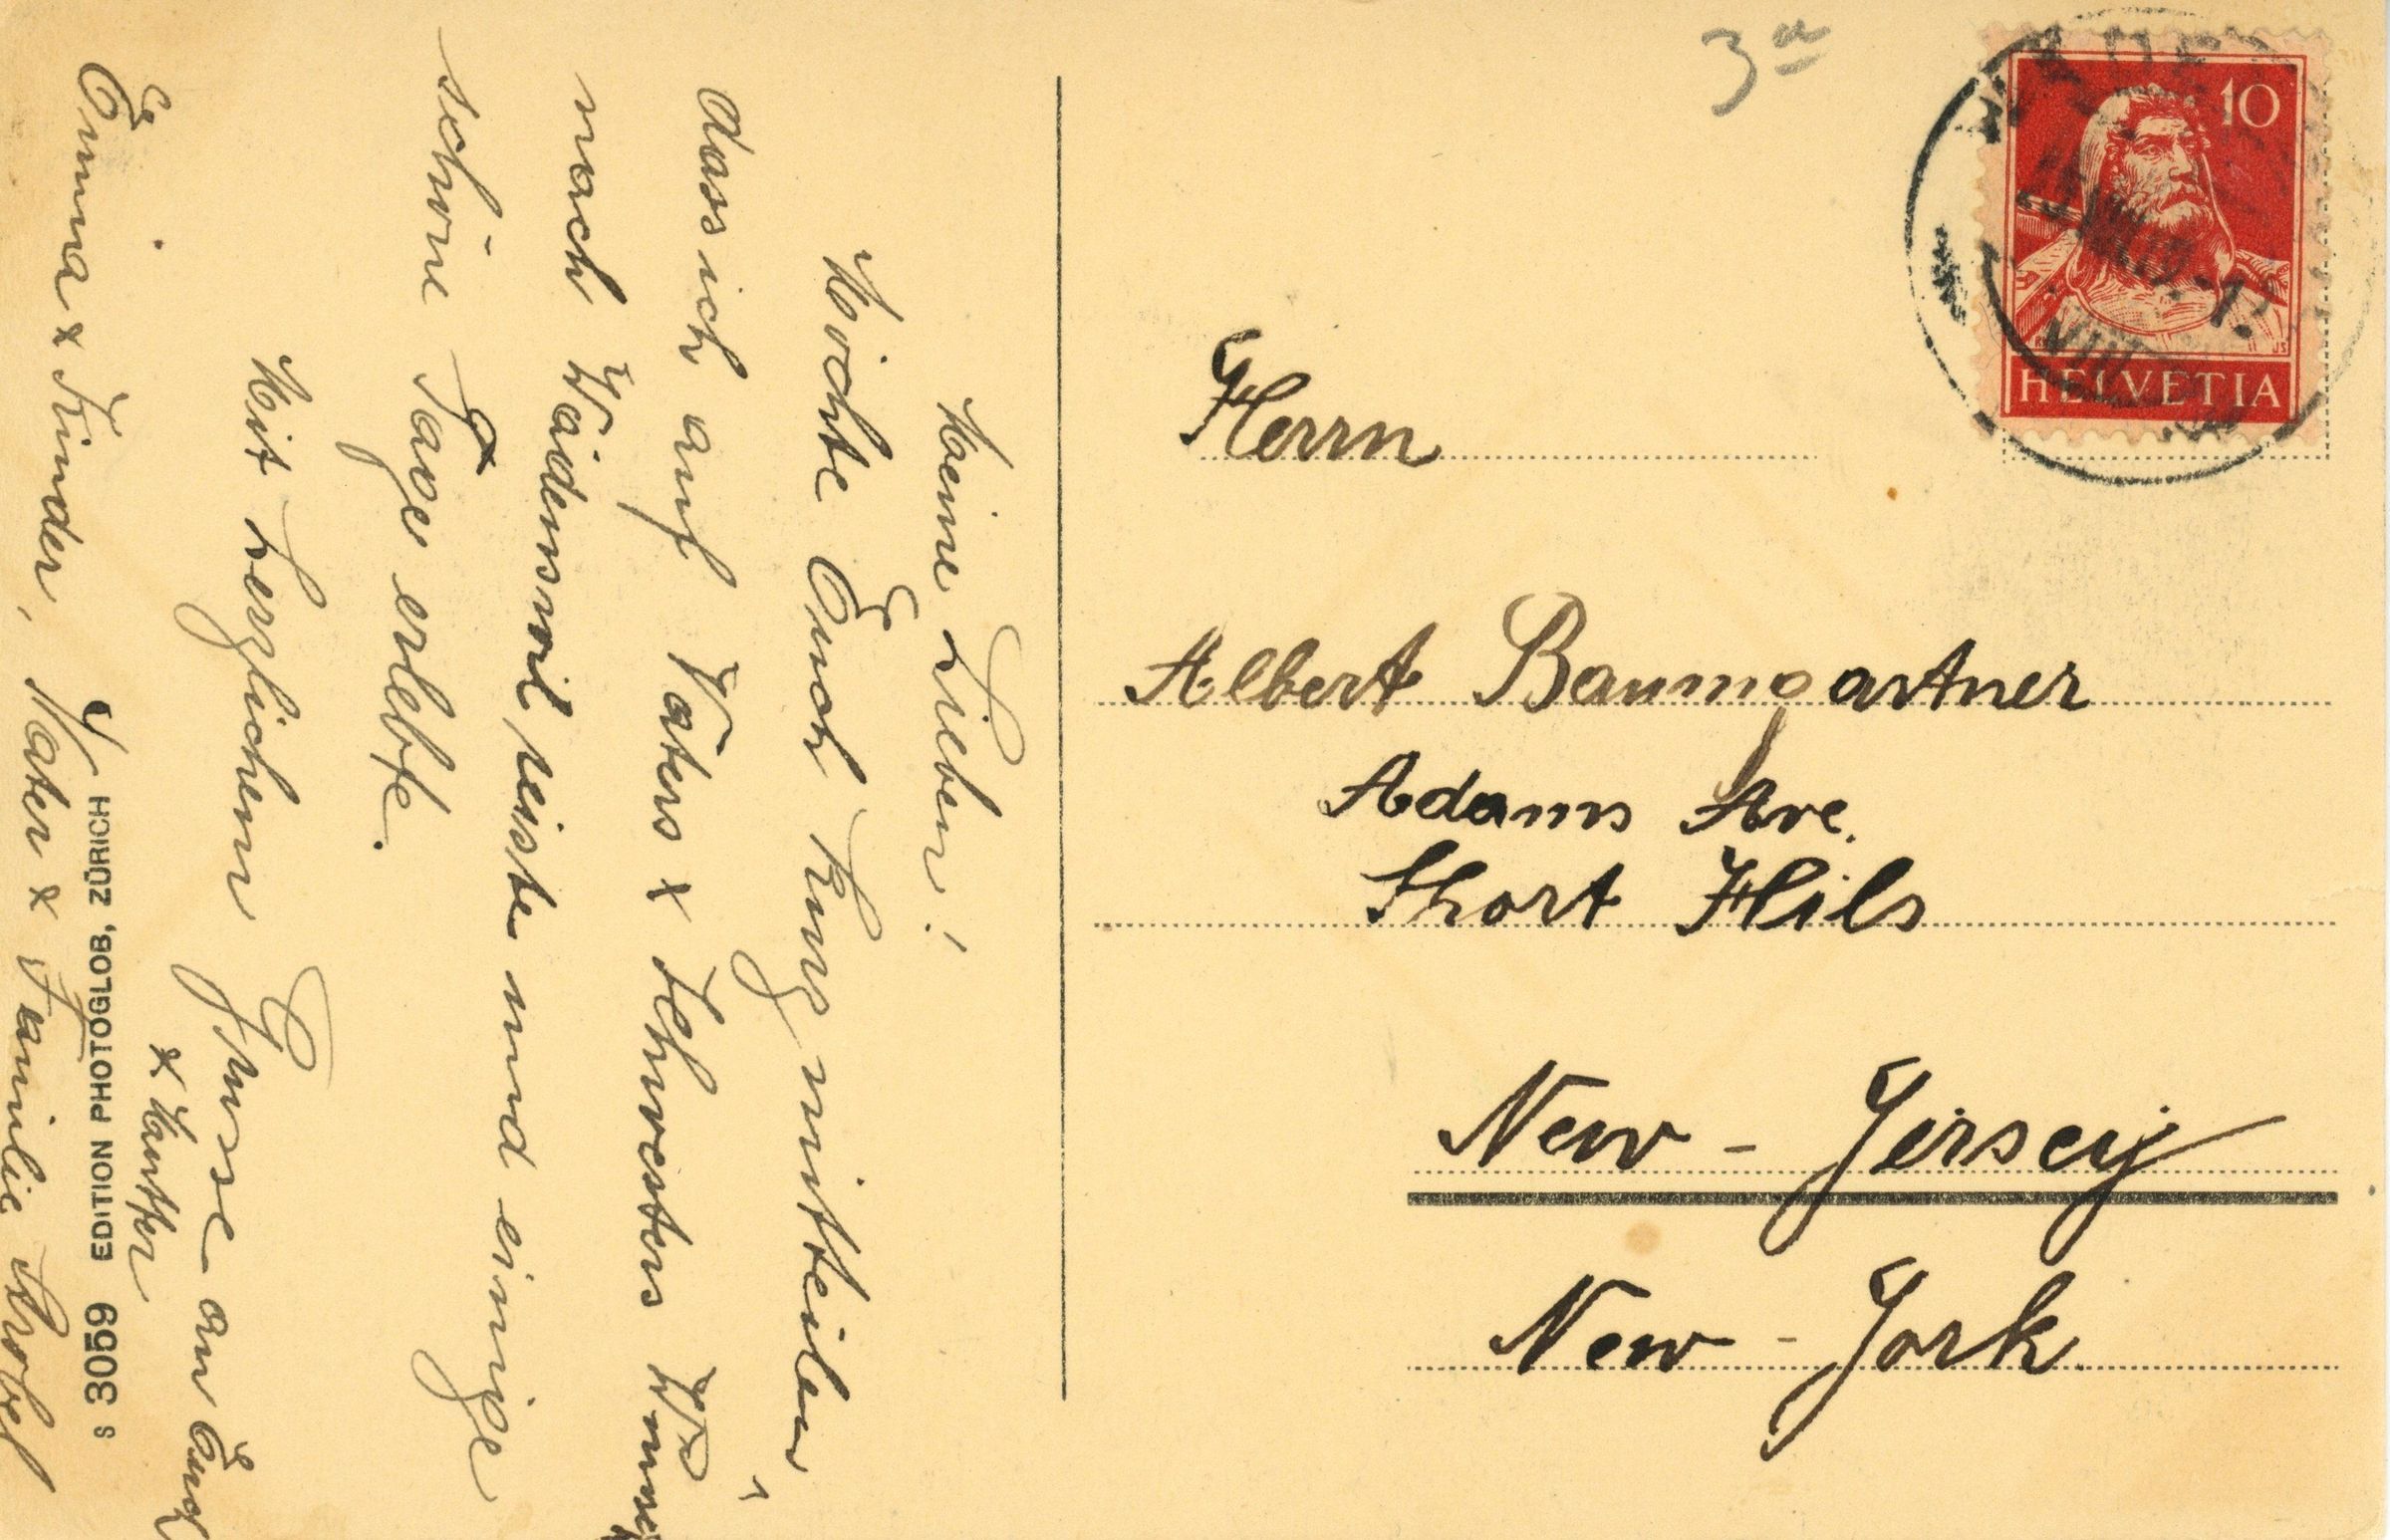 Meine Lieben!
Möchte Euch kurz mitteilen,
dass ich auf Vaters x Schwesters Wunsch
nach Wädenswil reiste und einige
schöne Tage erlebte.
Mit herzlichem Grusse an Euch
x Mutter
Emma x Kinder, Vater x Familie Strobel
S 3059 EDITION PHOTOGLOB, ZÜRICH
3
10
HELVETIA
VIII
Herrn
Albert Baumgartner
Adams Ave.
Short Hils
New - Jersey
New - York.